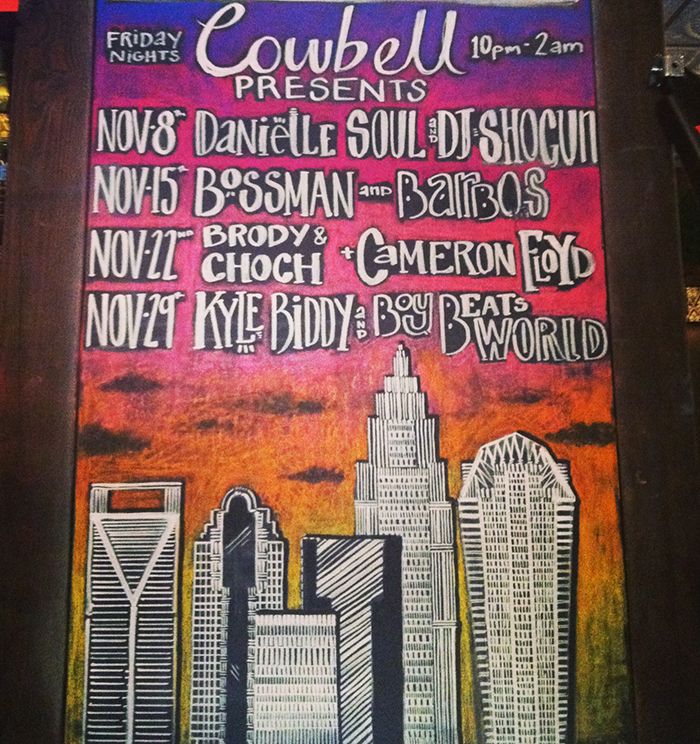 FRIDAY NIGHTS Cowbell 10pm - 2am
PRESENTS
NOV·8th DANiELLE SOUL AND DJ SHOGUN
NOV·15th BOSSMAN AND BARBOS
NOV·22ND BRODY & CHOCH + CAMERON FLOYD
NOV·29th KYLE BIDDY AND BOY BEATS WORLD